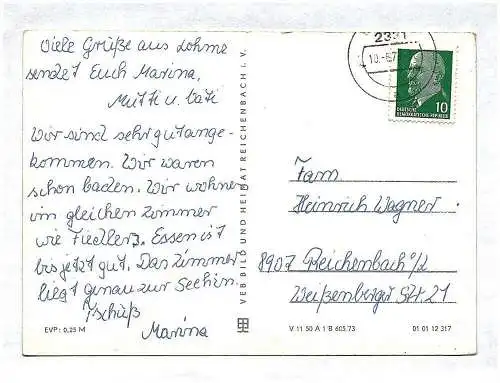 Viele Grüße aus Lohme
sendet Euch Marina,
Mutti u. Vati
Wir sind sehr gut ange-
kommen. Wir waren
schon baden. Wir wohnen
im gleichen Zimmer
wie Fiedlers. Essen ist
bis jetzt gut. Das Zimmer
liegt genau zur See hin.
Tschüß
Marina
EVP: 0,25 M
VEB BILD UND HEIMAT REICHENBACH i. V.
2331
DEUTSCHE
DEMOKRATISCHE REPUBLIK
10
Fam
Heinrich Wagner
8907 Reichenbach o/L
Weißenberger Str. 21
V 11 50 A 1 B 605/73
01 01 12 317